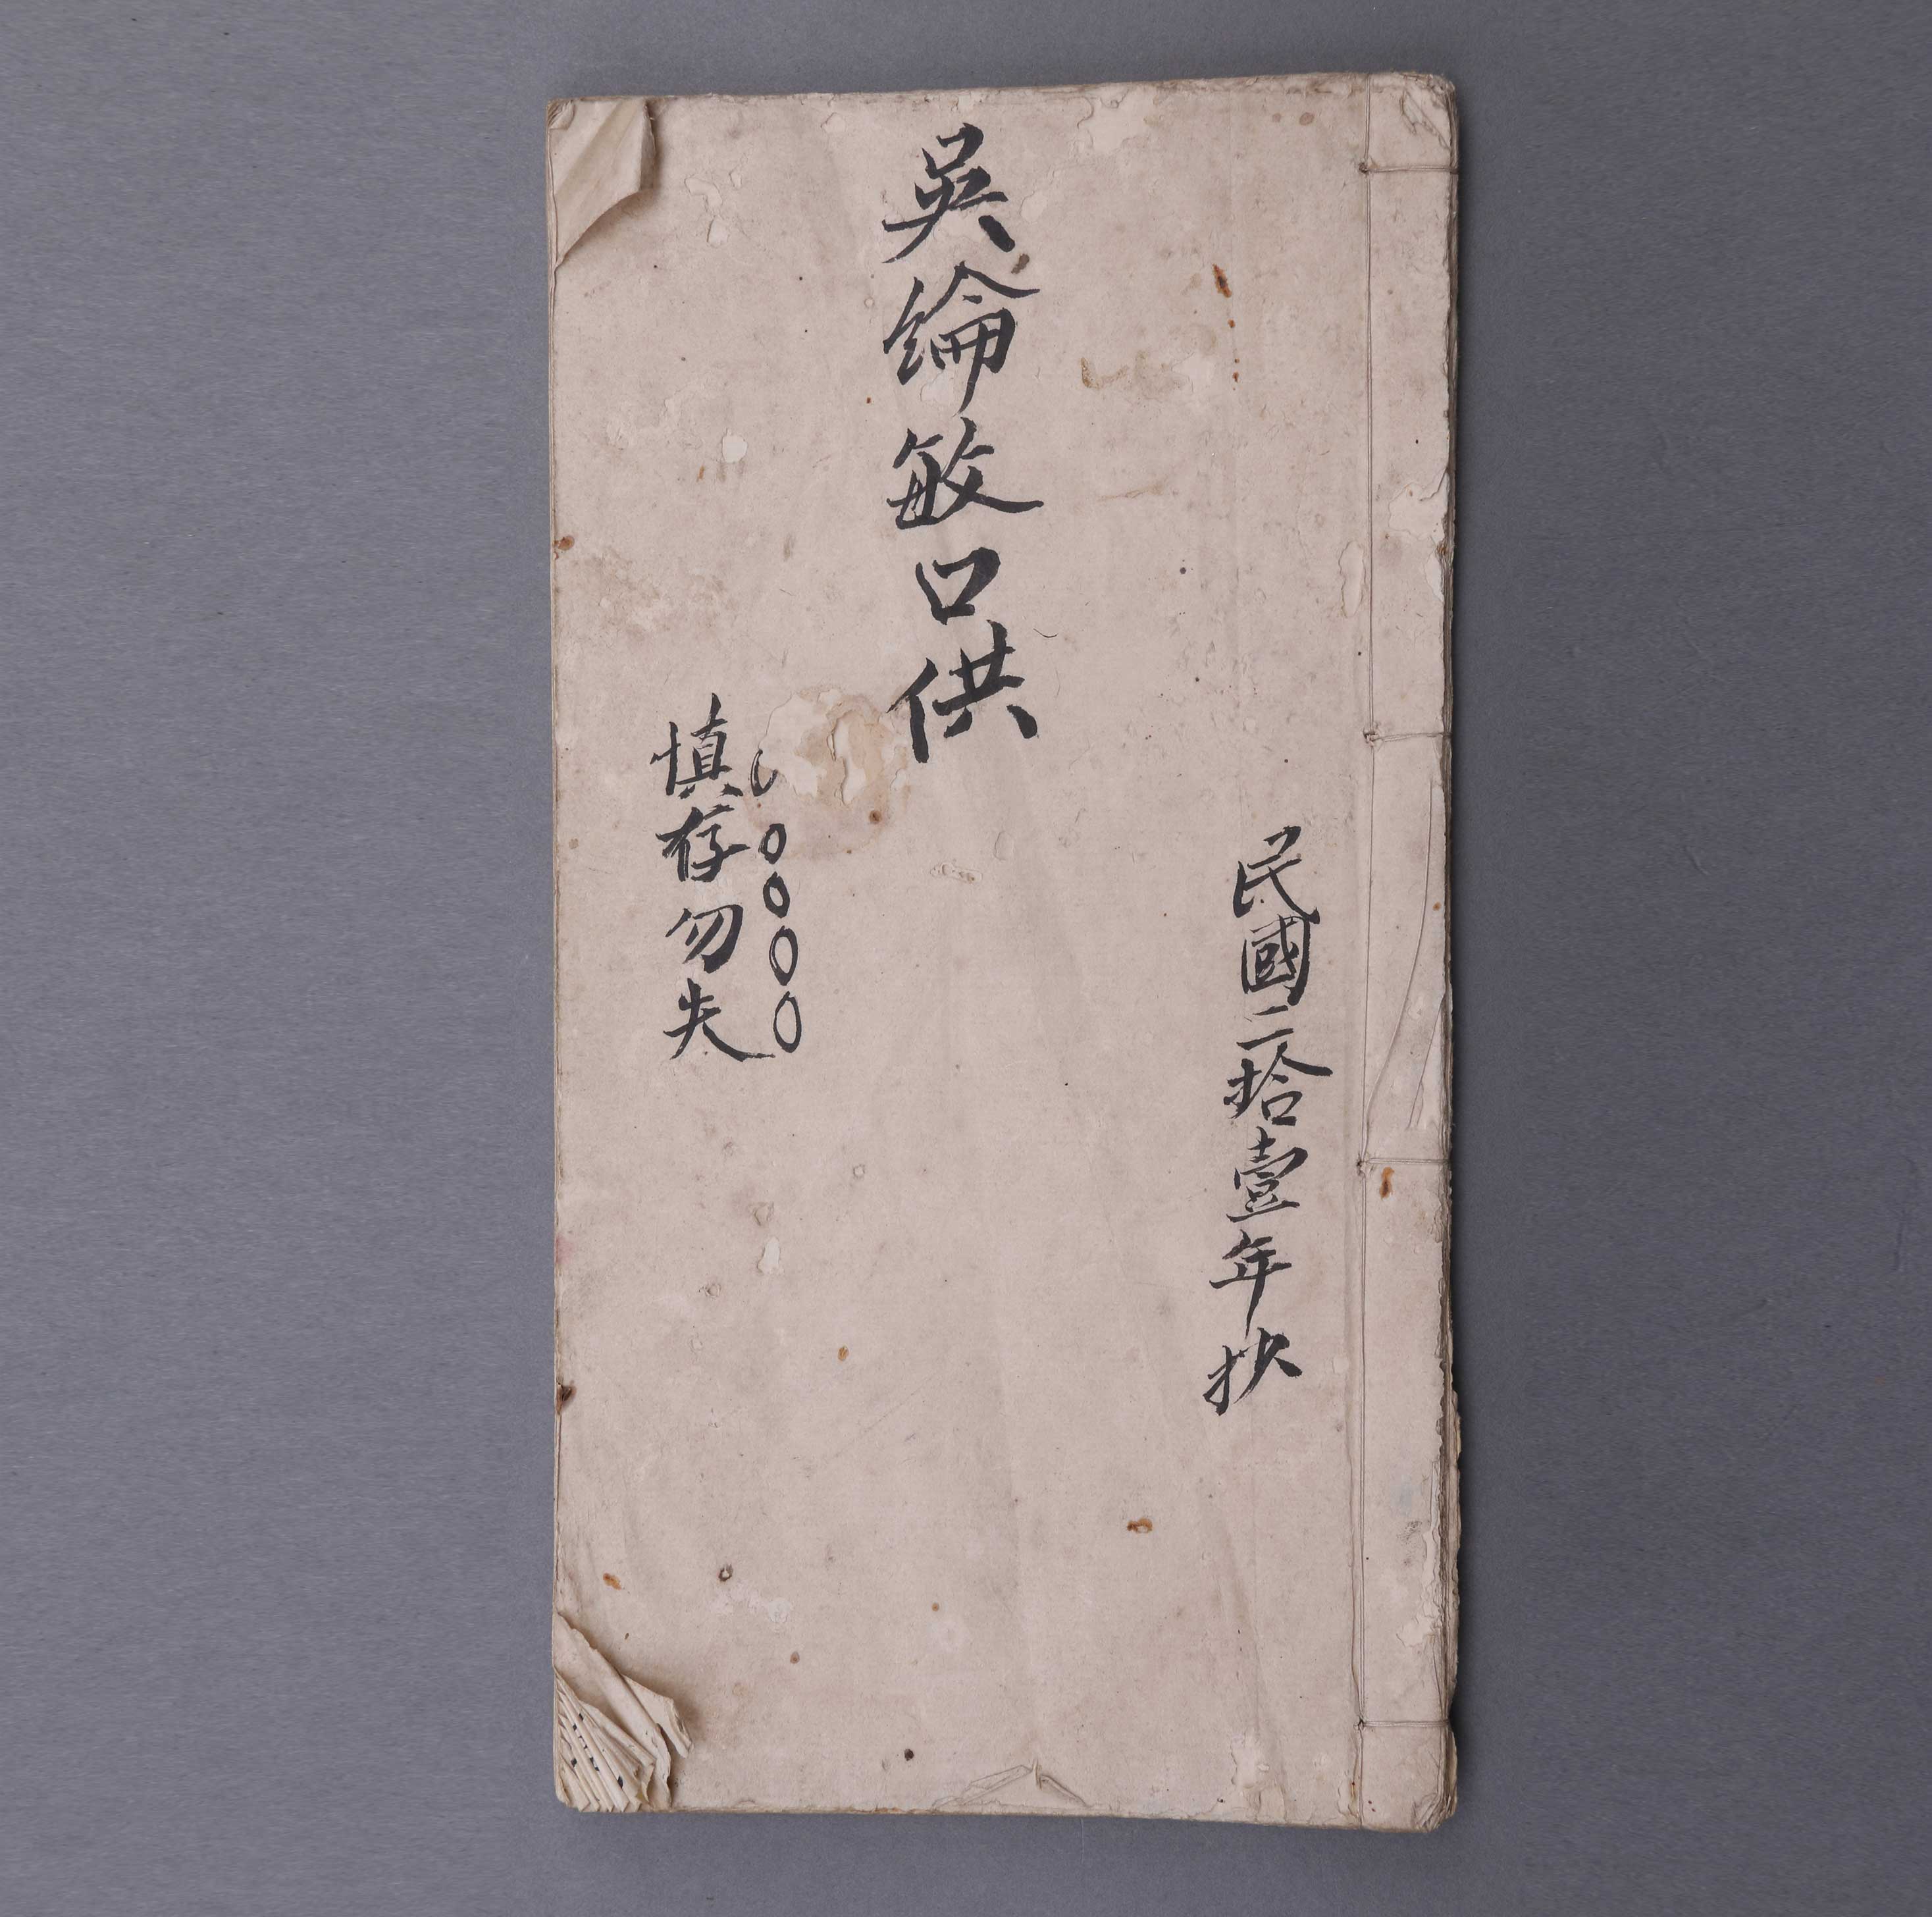 民國二拾壹年抄
吳綸敏口供
慎存勿失